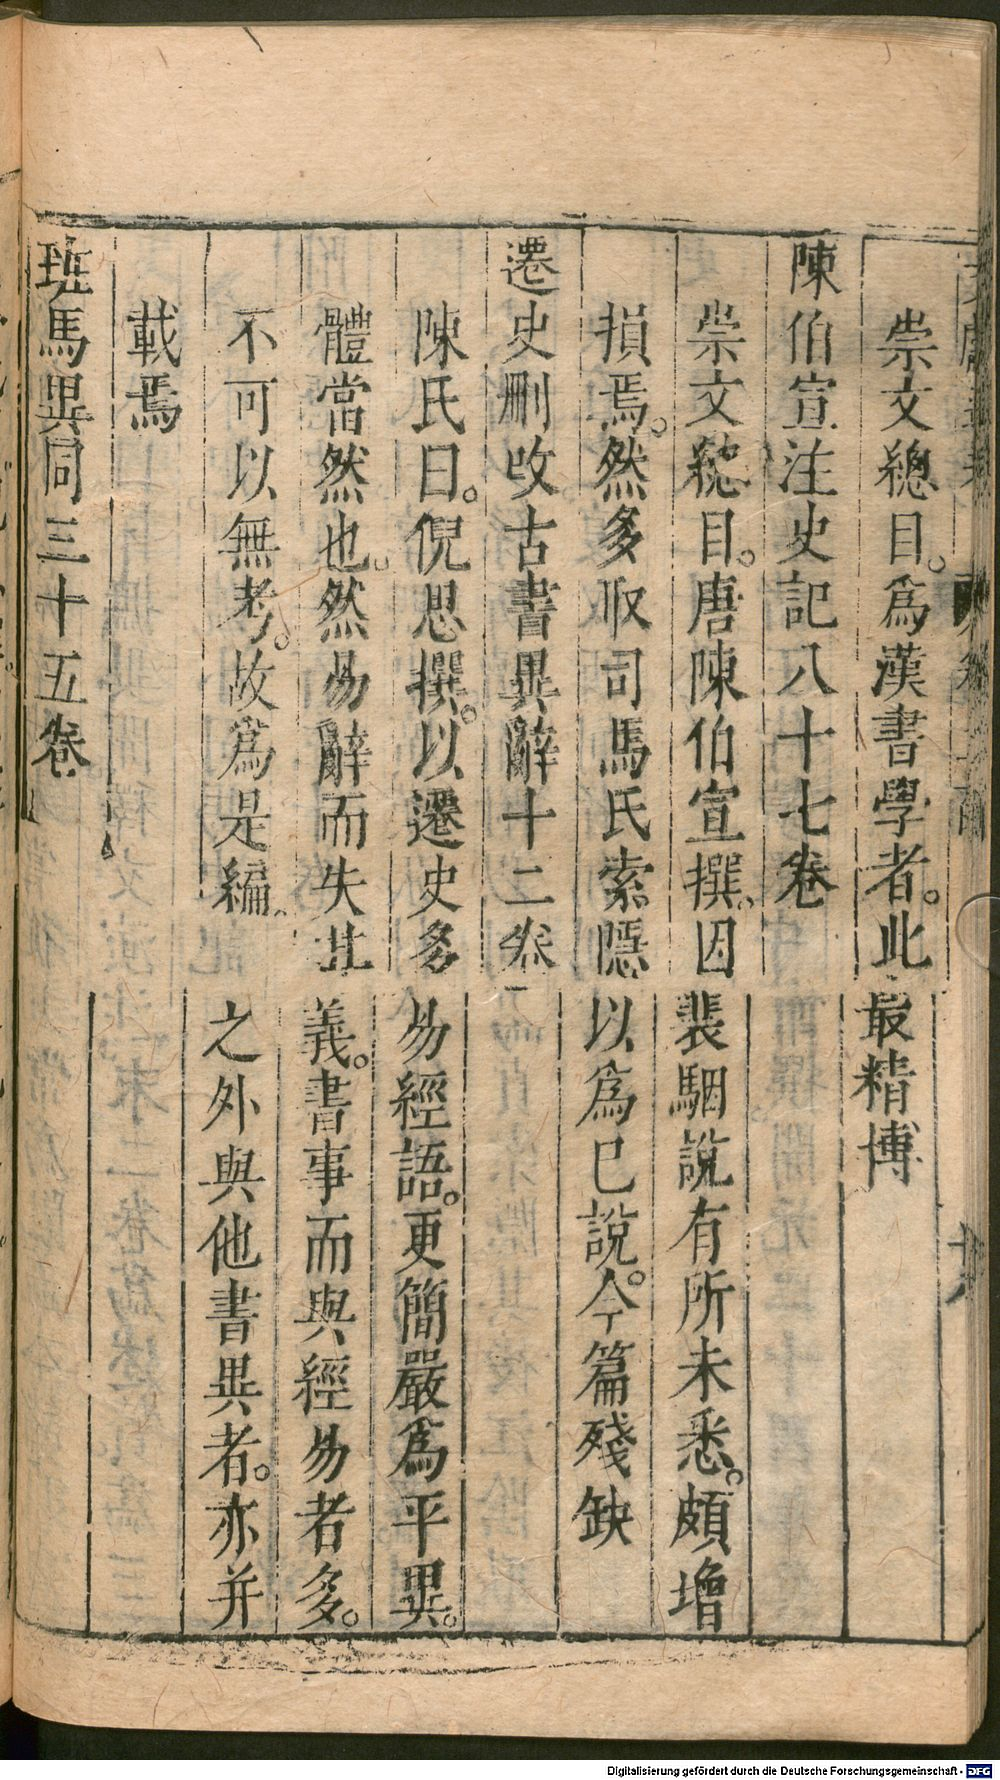 崇文緫目。爲漢書學者。此最精博
陳伯宣注史記八十七卷
崇文緫目。唐陳伯宣撰。因裴駰說有所未悉。頗增
損焉。然多取司馬氏索隱以爲已說。今篇殘缺
遷史刪攺古書異辭十二卷
陳氏曰。倪思撰。以遷史多易經語。更簡嚴爲平異。
體當然也。然易辭而失其義。書事而與經易者多。
不可以無考。故爲是編。之外與他書異者。亦并
載焉
班馬異同三十五卷
Digitalisierung gefördert durch die Deutsche Forschungsgemeinschaft - DFG